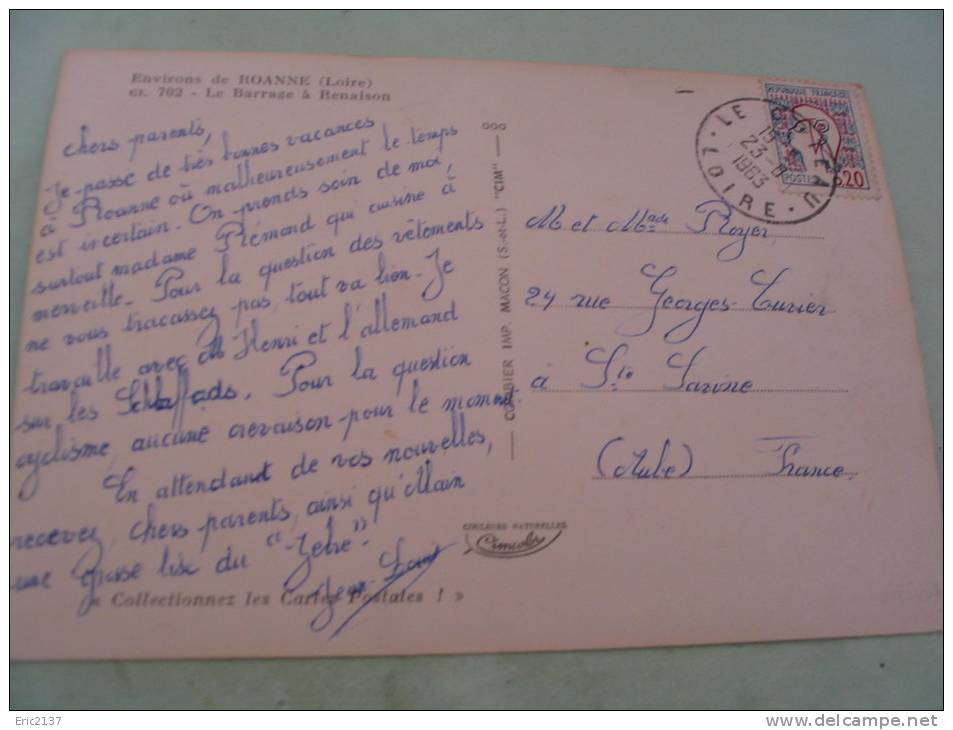 Environs de ROANNE (Loire)
CL. 702 - Le Barrage à Renaison
chers parents,
Je passe de très bonnes vacances
à Roanne où malheureusement le temps
est incertain. On prends soin de moi,
surtout madame Prémond qui cuisine à
merveille. Pour la question des vêtements
ne vous tracassez pas, tout va bien. Je
travaille avec M Henri et l'allemand
sur les
cyclisme, aucune crevaison pour le moment.
Pour la question
En attendant de vos nouvelles,
recevez, chers parents, ainsi qu'Alain
une grosse bise du "Zèbre".
Jean Louis
« Collectionnez les Cartes Postales ! »
COMBIER IMP. MACON (S.-et-L.) "CIM"
COULEURS NATURELLES
Cimcolor
LE COTEAU
23 - 8
1963
LOIRE
REPUBLIQUE FRANÇAISE
POSTES
0,20
M et Mme Royer
24 rue Georges Cuvier
à Ste Savine
(Aube) France
Eric2137
http://www.delcampe.net